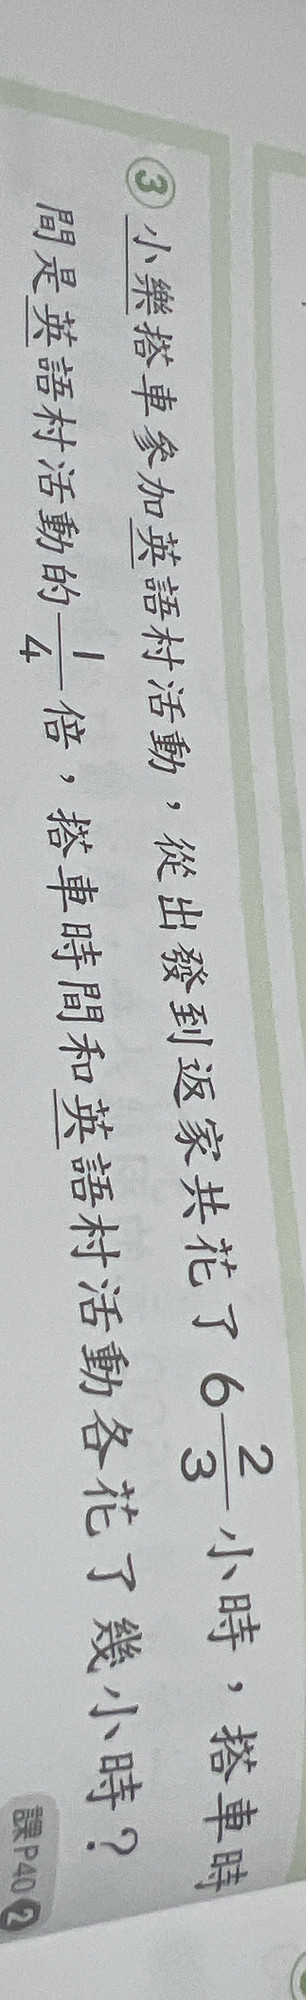 ③小樂搭車參加英語村活動，從出發到返家共花了6 2/3小時，搭車時
間是英語村活動的1/4倍，搭車時間和英語村活動各花了幾小時？
課P40❷